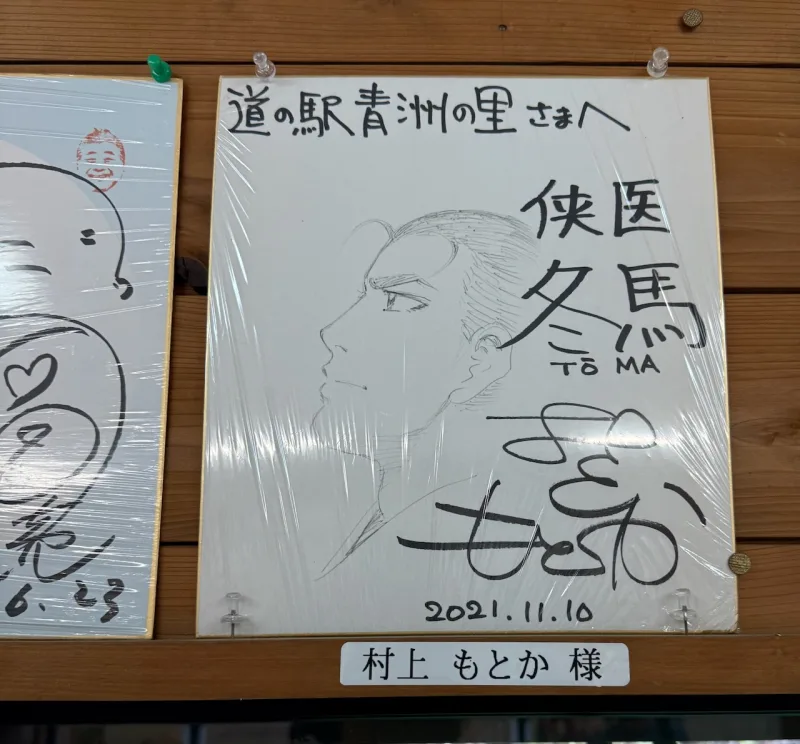 道の駅青洲の里 さまへ
侠医
冬馬
TŌMA
村上
もとか
2021.11.10
村上 もとか 様
6.23